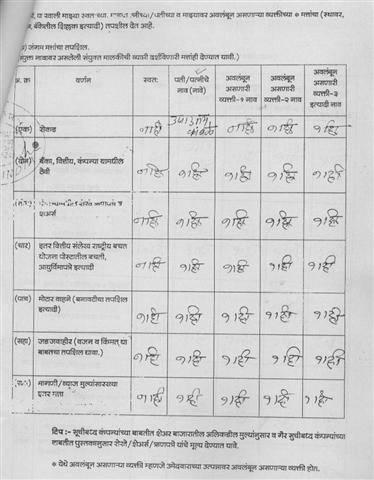 मी, या खाली माझ्या स्वतःच्या, माझ्या पत्नीच्या/पतीच्या व माझ्यावर अवलंबून असणाऱ्या व्यक्तीच्या * मत्तांचा (स्थावर,
जंगम, बँकेतील शिल्लक इत्यादी) तपशील देत आहे.
) जंगम मत्तांचा तपशिल.
संयुक्त नावावर असलेली संयुक्त मालकीची व्याप्ती दर्शविणारी मत्ताही देण्यात यावी.)
अ. क्र वर्णन स्वतः पती/पत्नीचे नाव (नावे) अवलंबून असणारी व्यक्ती-१ नाव अवलंबून असणारी व्यक्ती-२ नाव अवलंबून असणारी व्यक्ती-३ इत्यादी नाव
(एक) रोकड नाही नाही नाही नाही
(दोन) बँका, वित्तीय, कंपन्या यामधील ठेवी नाही नाही नाही नाही नाही
शेअर्स नाही नाही नाही नाही नाही
(चार) इतर वित्तीय संलेख राष्ट्रीय बचत योजना पोस्टातील बचती, आयुर्विमापत्रे इत्यादी नाही नाही नाही नाही नाही
(पाच) मोटार वाहने (बनावटीचा तपशिल इत्यादी) नाही नाही नाही नाही नाही
(सहा) जडजवाहीर (वजन व किंमत या बाबतचा तपशील द्यावा.) नाही नाही नाही नाही नाही
मागणी/व्याज मुल्यांसारख्या इतर मत्ता नाही नाही नाही नाही नाही
टिप :- सूचीबध्द कंपन्यांच्या बाबतीत शेअर बाजारातील अलिकडील मुल्यांनुसार व गैर सुचीबध्द कंपन्यांच्या
बाबतीत पुस्तकानुसार रोखे/शेअर्स/ऋणपत्रे यांचे मूल्य देण्यात यावे.
* येथे अवलंबून असणाऱ्या व्यक्ती म्हणजे उमेदवाराच्या उत्पन्नावर अवलंबून असणाऱ्या व्यक्ती होत.